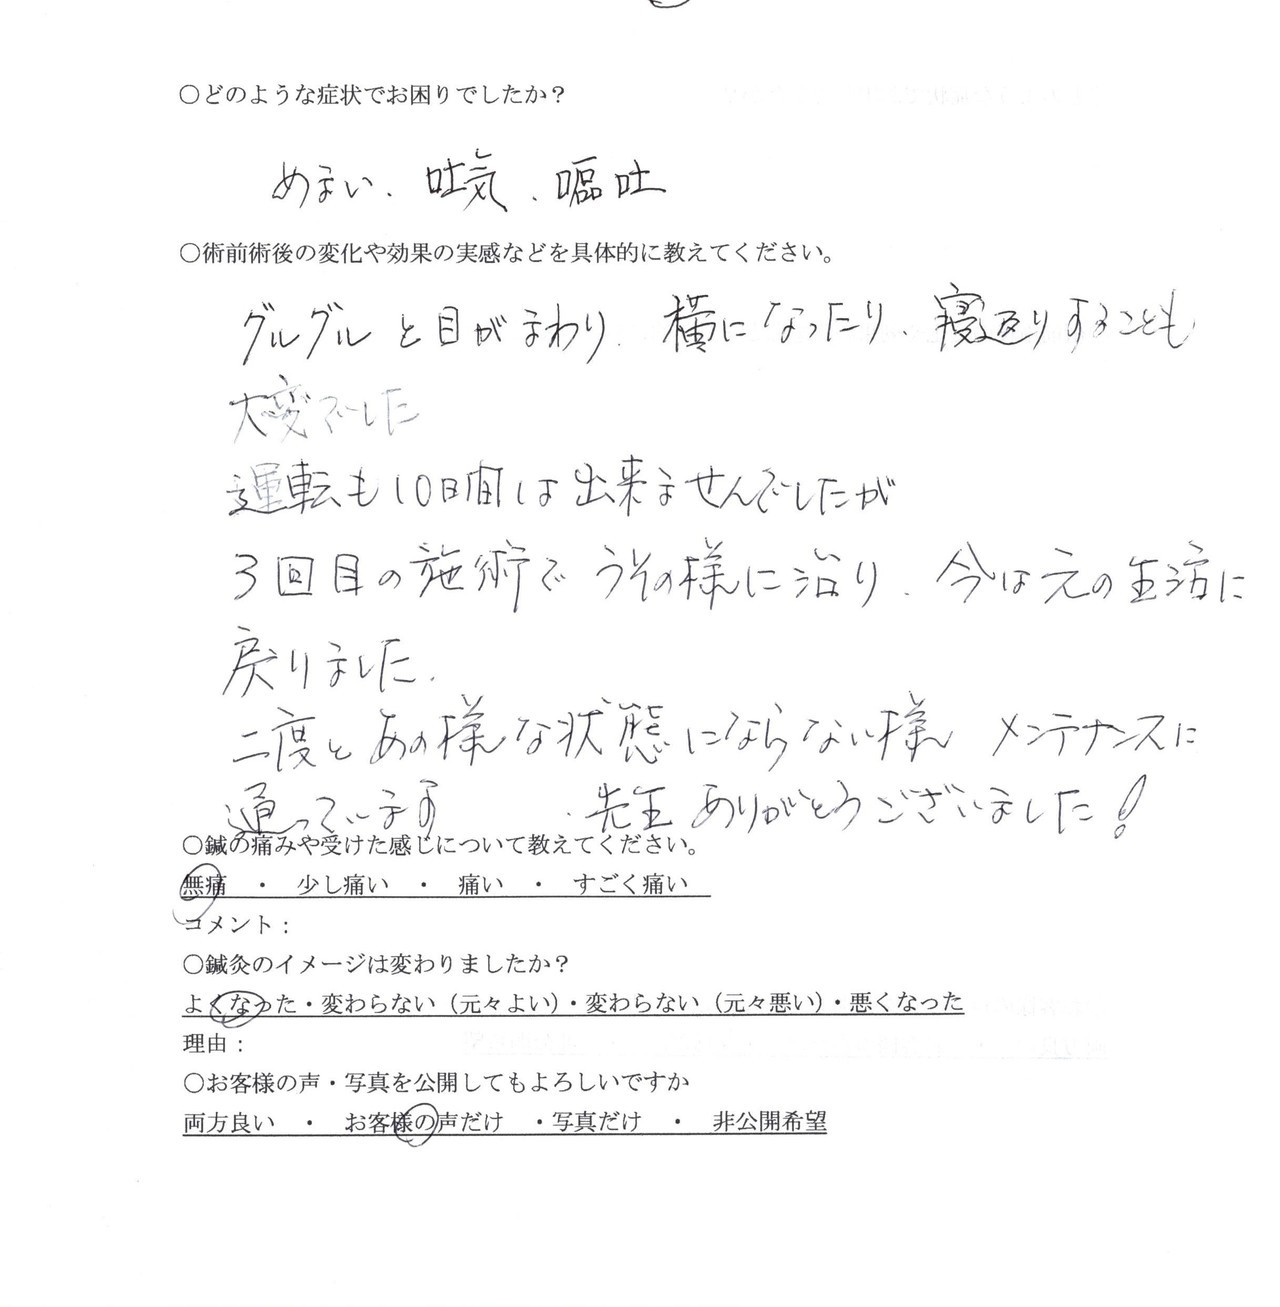 ○どのような症状でお困りでしたか？
めまい、吐気、嘔吐
○術前術後の変化や効果の実感などを具体的に教えてください。
グルグルと目がまわり、横になったり、寝返りすることも
大変でした
運転も10日間は出来ませんでしたが
3回目の施術でうその様に治り、今は元の生活に
戻りました。
二度とあの様な状態にならない様 メンテナンスに
通っています 、先生ありがとうございました！
○鍼の痛みや受けた感じについて教えてください。
無痛　・　少し痛い　・　痛い　・　すごく痛い
コメント：
○鍼灸のイメージは変わりましたか？
よくなった・変わらない（元々よい）・変わらない（元々悪い）・悪くなった
理由：
○お客様の声・写真を公開してもよろしいですか
両方良い　・　お客様の声だけ　・写真だけ　・　非公開希望